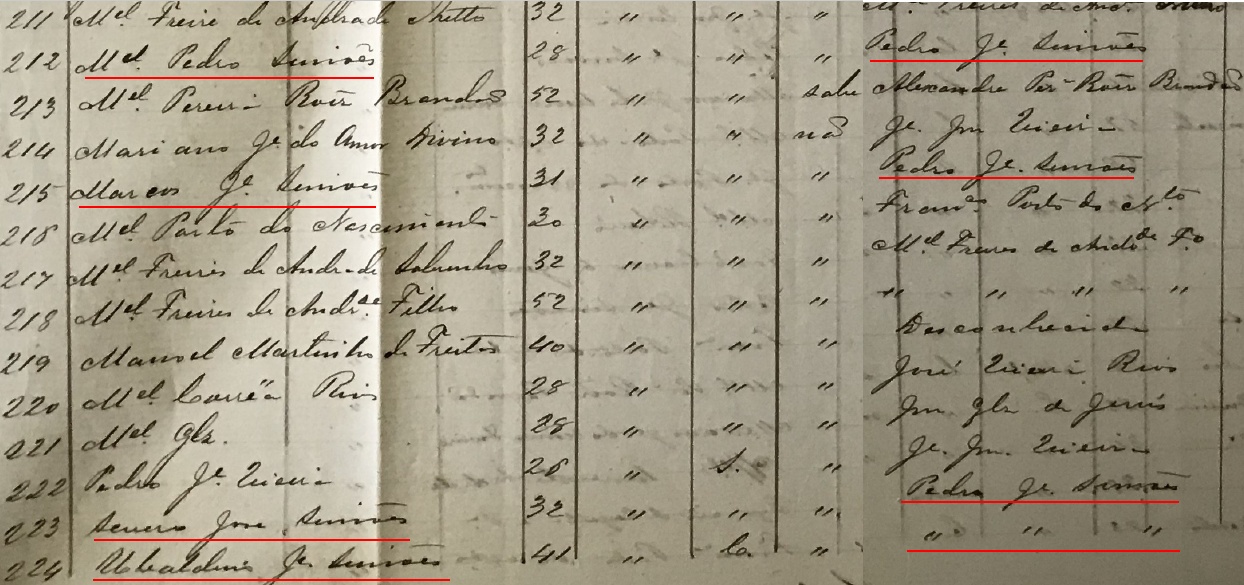 211 Mel. Freire de Andrade Netto 32 " " "
212 Mel. Pedro Simões 28 " " " Pedro Je. Simões
213 Mel. Pereira Roiz Brandão 52 " " sabe Alexandre Per.a Roiz Brandão
214 Mariano Je. do Amor Divino 32 " " não Je. Jm Vieira
215 Marcos Je. Simões 31 " " " Pedro Je. Simões
216 Mel. Porto do Nascimento 30 " " " Franco Porto do Nto
217 Mel Freires de Andrade Sobrinho 32 " " " Mel Freires de Andde Fo
218 Mel. Freires de Andr.de Filho 52 " " " " " " "
219 Manoel Martinho de Freitas 40 " " " Desconhecido
220 Mel. Corrêa Rios 28 " " " José Vieira Rios
221 Mel Glz. 28 " " " Jm Glz de Jesus
222 Pedro Je. Vieira 26 " S. " Je. Jm. Vieira
223 Severo José Simões 32 " " " Pedro Je. Simões
224 Ubaldino Je. Simões 41 " C. " " " "